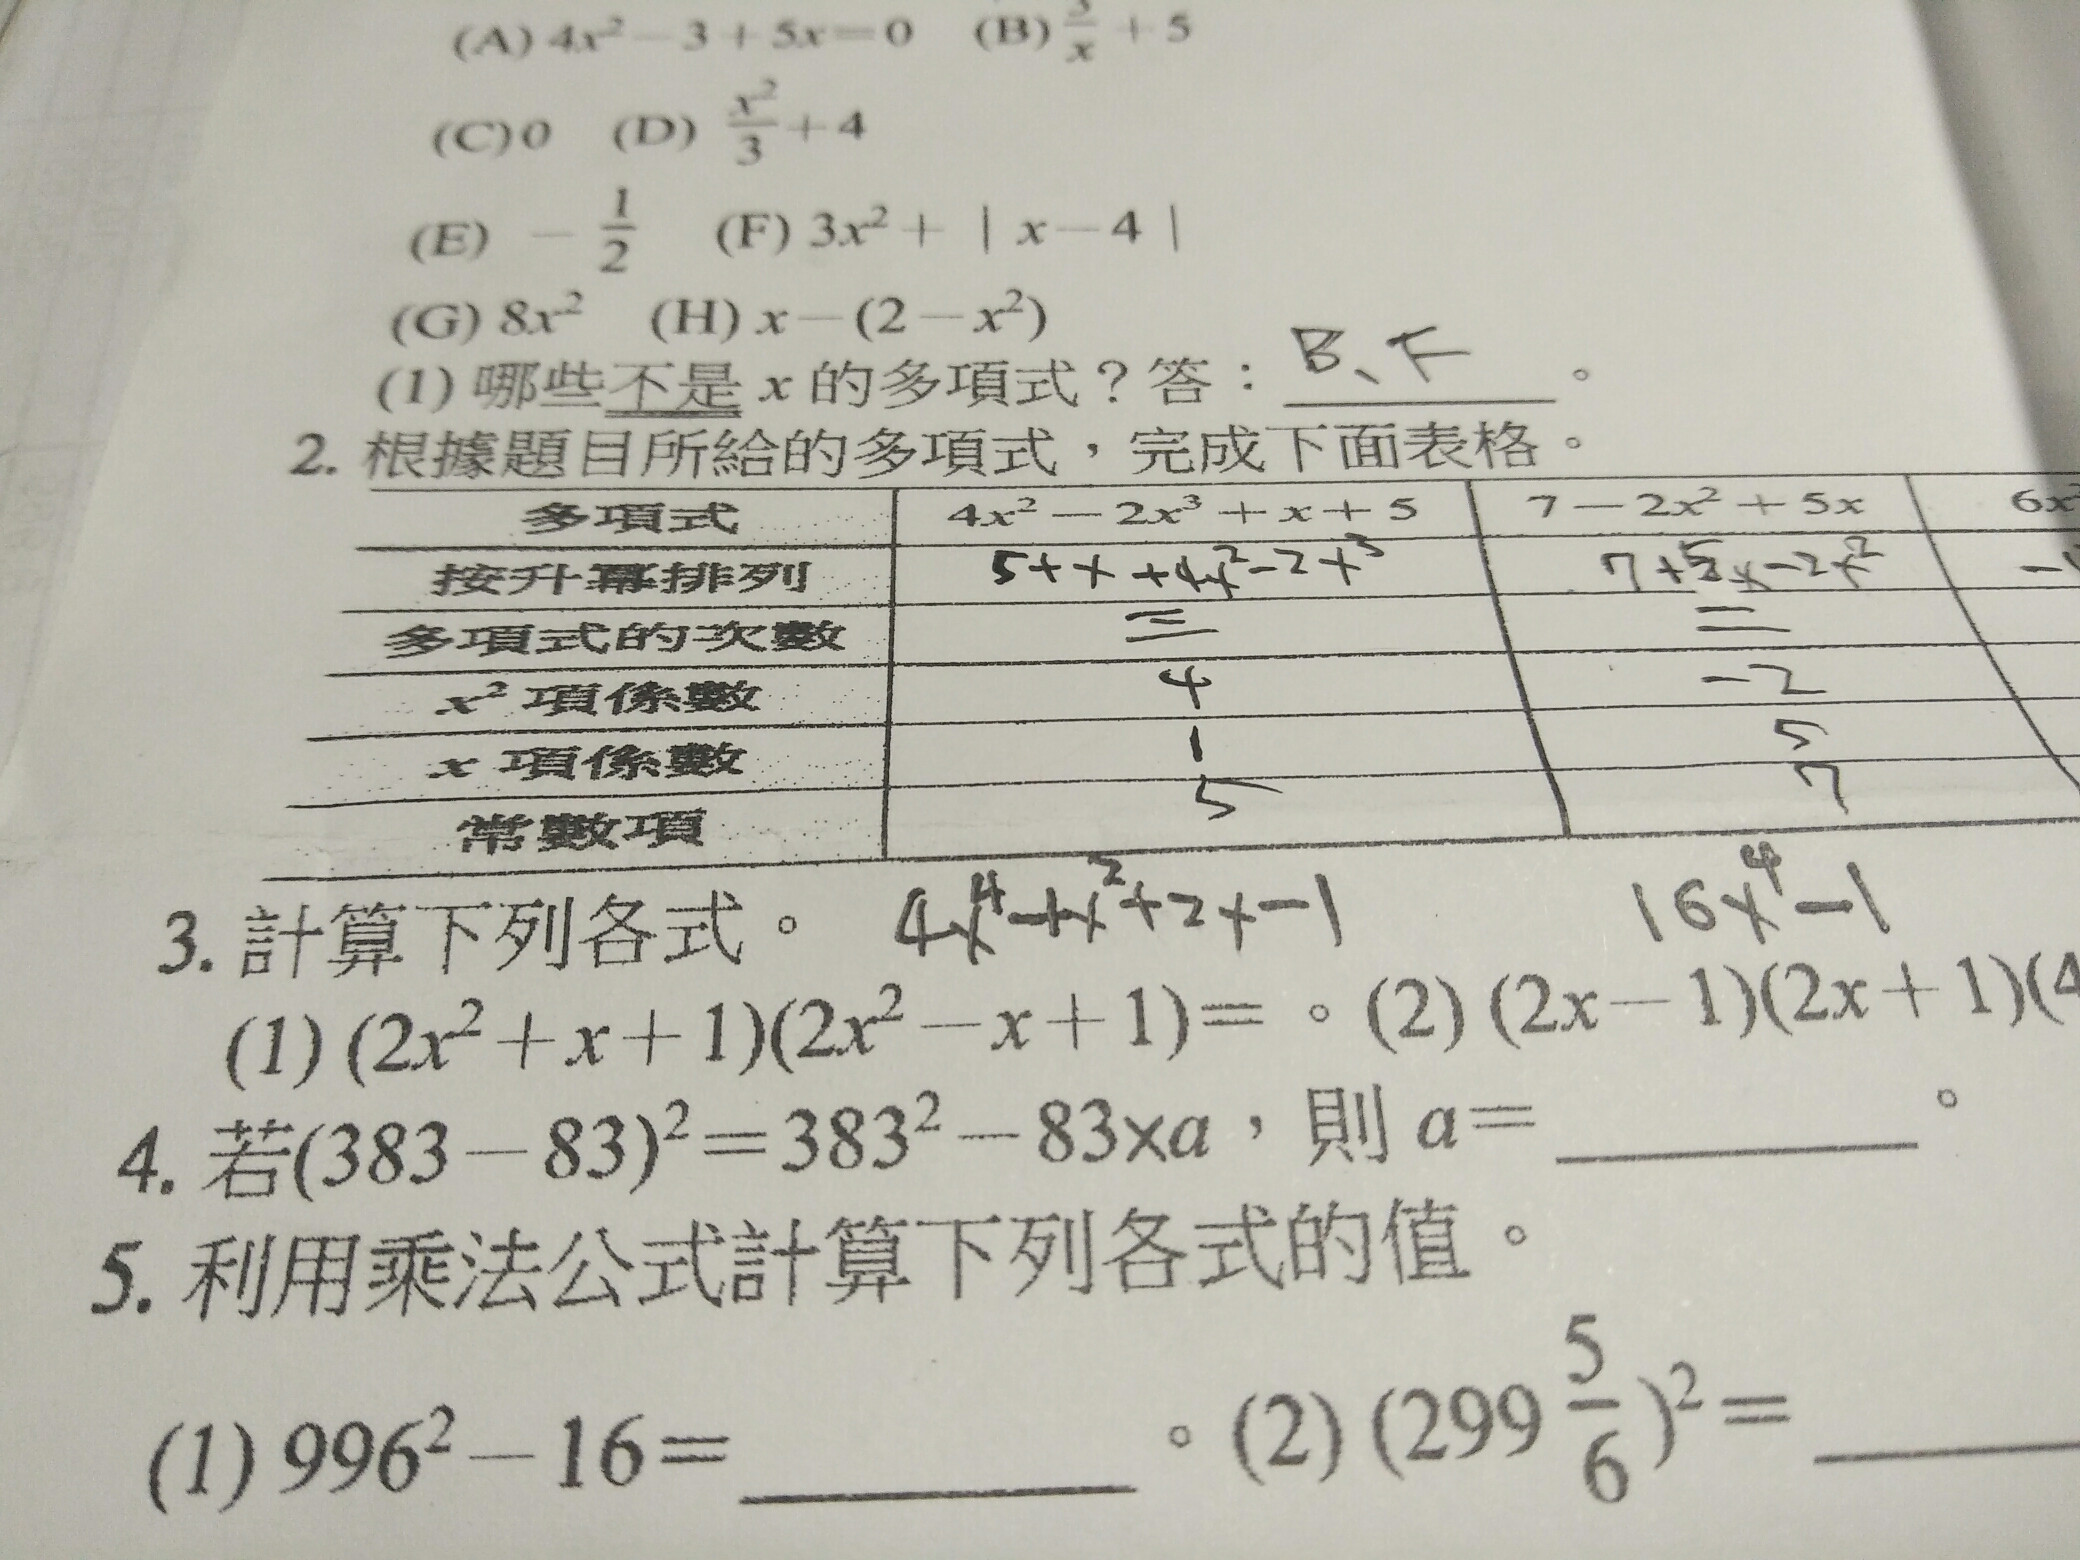 (A) 4x²－3＋5x＝0 (B) 3/x ＋5
(C) 0 (D) x²/3 ＋4
(E) －1/2 (F) 3x²＋｜x－4｜
(G) 8x² (H) x－(2－x²)
(1) 哪些不是 x 的多項式？答：B、F。
2. 根據題目所給的多項式，完成下面表格。
多項式 4x²－2x³＋x＋5 7－2x²＋5x 6x
按升冪排列 5+x+4x²-2x³ 7+5x-2x² -
多項式的次數 三 二
x² 項係數 4 -2
x 項係數 1 5
常數項 5 7
3. 計算下列各式。 16x⁴-1
(1) (2x²＋x＋1)(2x²－x＋1)＝ 。(2) (2x－1)(2x＋1)(4
4. 若(383－83)²＝383²－83×a，則 a＝ 。
5. 利用乘法公式計算下列各式的值。
(1) 996²－16＝ 。(2) (299 5/6)²＝